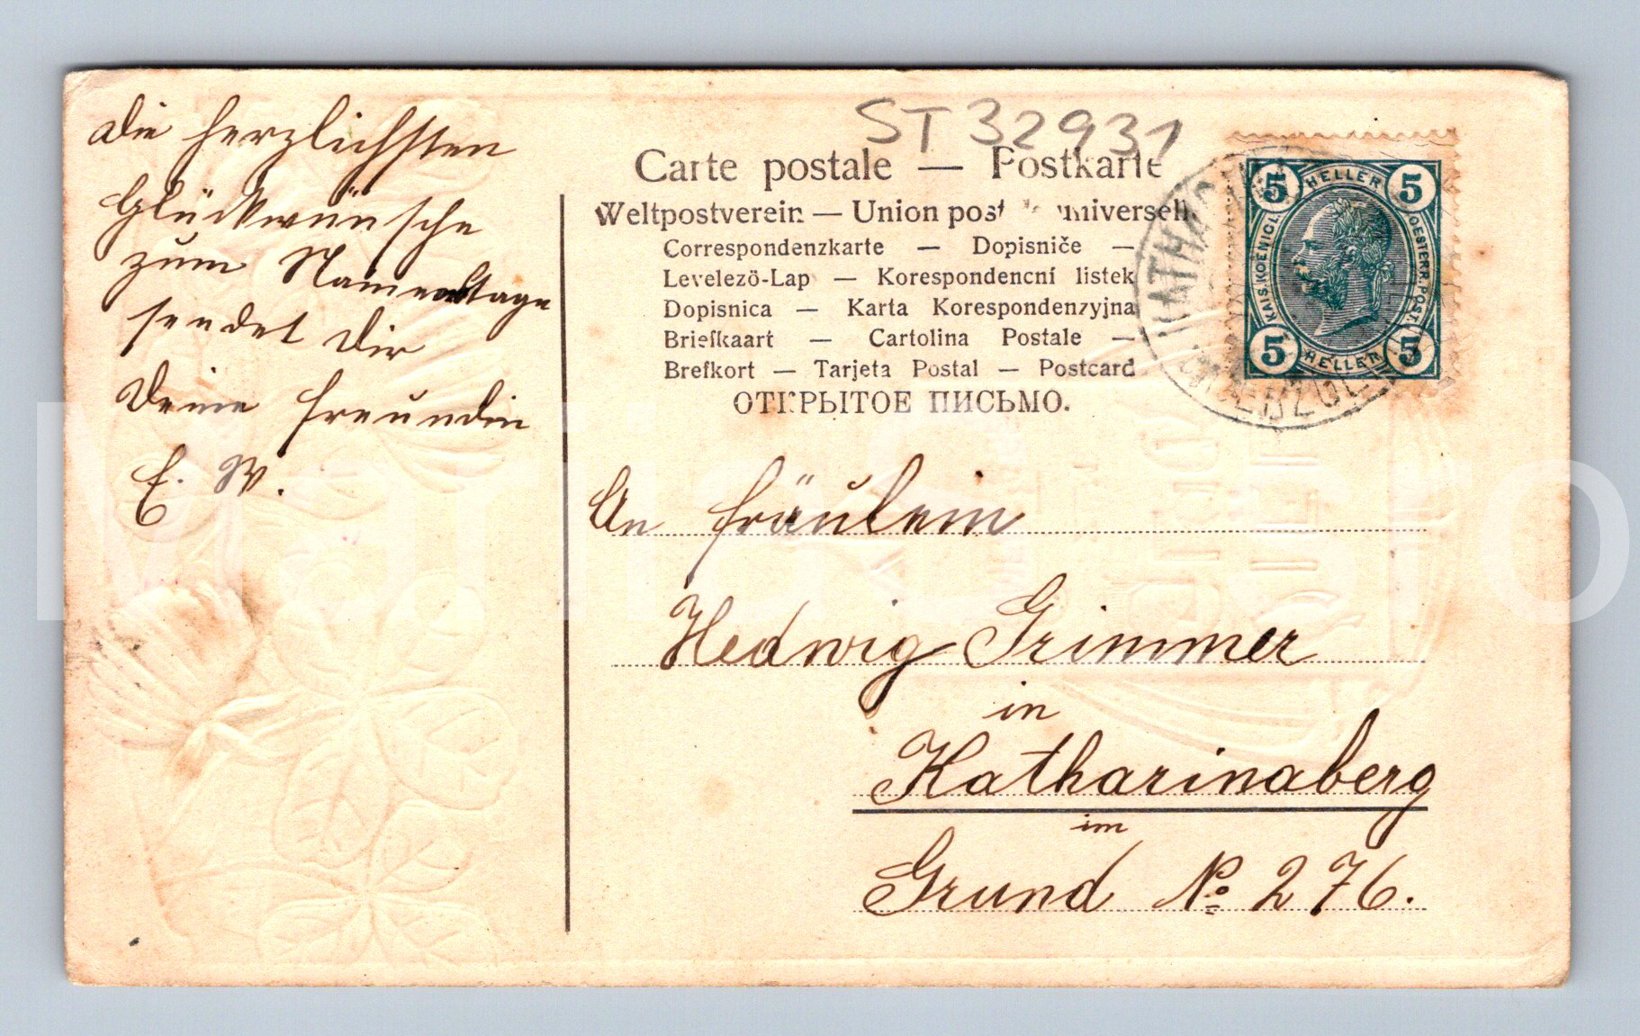 Die herzlichsten
Glückwünsche
zum Namenstage
sendet Dir
Deine Freundin
E. W.
ST 32931
Carte postale — Postkarte
Weltpostverein — Union postale universelle
Correspondenzkarte — Dopisniče —
Levelezö-Lap — Korespondencní listek
Dopisnica — Karta Korespondenzyjna
Briefkaart — Cartolina Postale —
Brefkort — Tarjeta Postal — Postcard
ОТКРЫТОЕ ПИСЬМО.
5 HELLER 5
KAIS. KOENIGL. OESTERR. POST.
5 HELLER 5
An Fräulein
Hedwig Grimmer
in
Katharinaberg
im
Grund No 276.